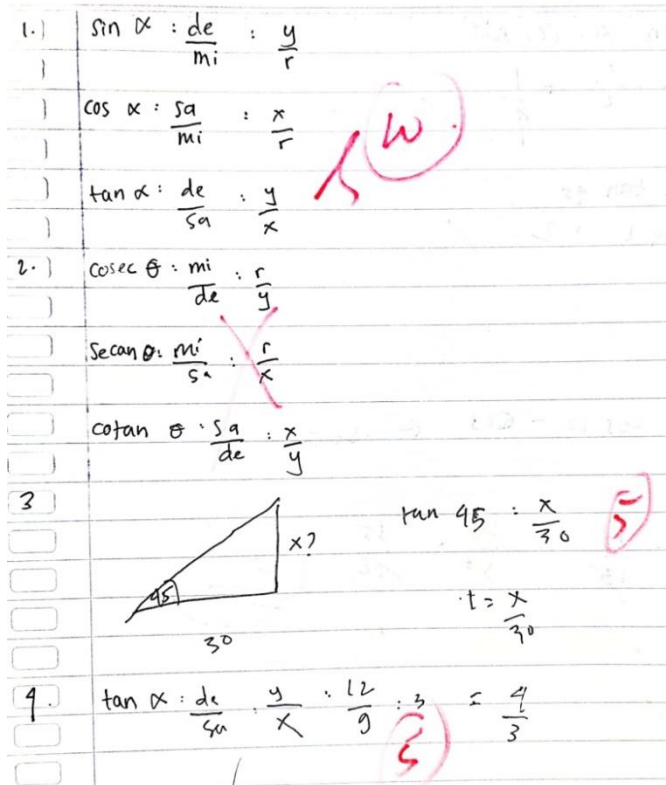 1.) sin α : de/mi : y/r
cos α : sa/mi : x/r
10
tan α : de/sa : y/x
2. cosec θ : mi/de : r/y
Secan θ : mi/sa : r/x
cotan θ : sa/de : x/y
3 tan 45 : x/30 5
x?
45
30
t = x/30
4. tan α : de/sa : y/x : 12/9 : 3 = 4/3
5